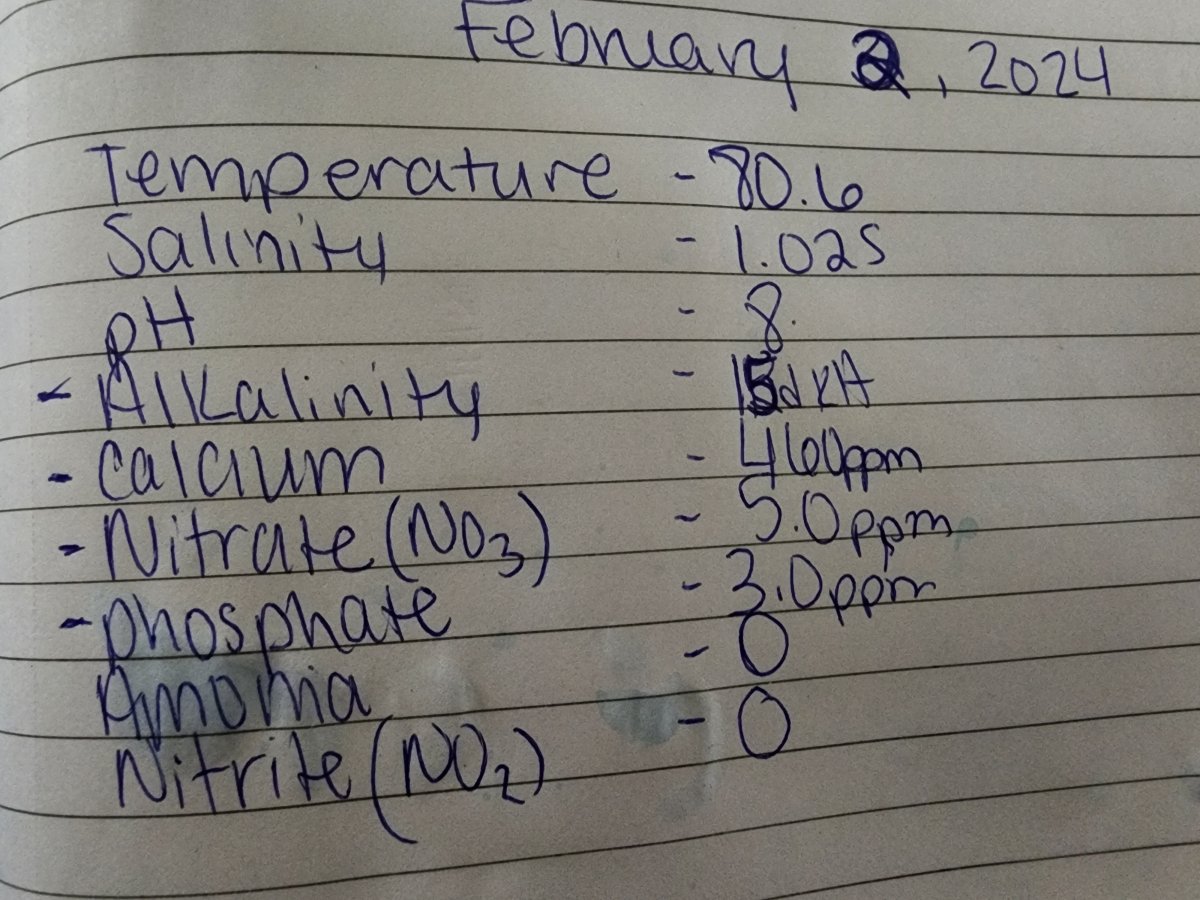 February 2, 2024
Temperature - 80.6
Salinity - 1.025
pH - 8.
- Alkalinity - 15dKH
- Calcium - 460ppm
- Nitrate (NO3) - 5.0ppm
- phosphate - 3.0ppm
Amonia - 0
Nitrite (NO2) - 0